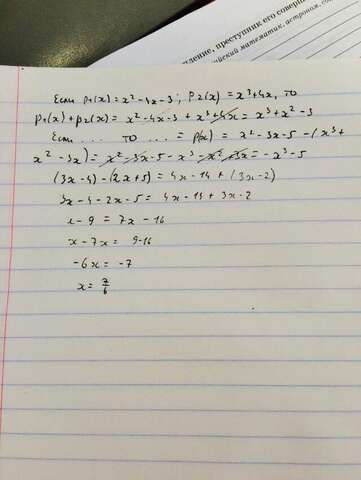 пление, преступник его соверш
ийский математик, астроном, со
Если p₁(x)=x²-4x-3; p₂(x)=x³+4x, то
p₁(x)+p₂(x)= x²-4x-3+x³+4x=x³+x²-3
Если ... то ... = p(x) = x²-3x-5-(x³+
x²-3x)= x²-3x-5-x³-x²+3x=-x³-5
(3x-4)-(2x+5)=4x-14+(3x-2)
3x-4-2x-5=4x-14+3x-2
x-9=7x-16
x-7x=9-16
-6x=-7
x=7/6